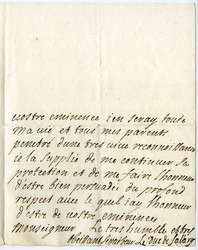 vostre eminence ien seray toute
ma vie et tous mes parents
penetré dune tres vive reconnoissance
ie la supplie de me continuer sa
protection et de me faire lhonneur
destre bien persuadée du profond
respect avec le quel iay lhonneur
destre de vostre eminence
Monseigneur Le tres humble et tres
obeissant serviteur Le Duc de